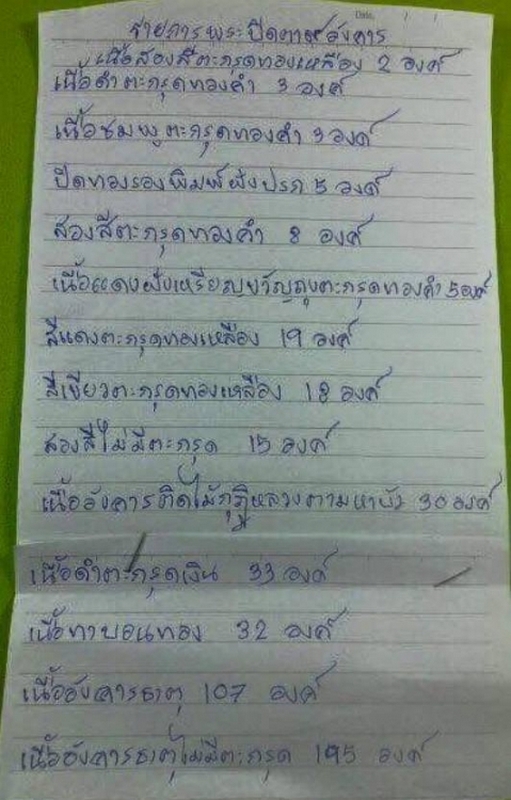 รายการพระปิดตาอังคาร
เนื้อสองสีตะกรุดทองเหลือง 2 องค์
เนื้อดำตะกรุดทองคำ 3 องค์
เนื้อชมพูตะกรุดทองคำ 3 องค์
ปิดทองรองพิมพ์ฝังปรก 5 องค์
สองสีตะกรุดทองคำ 8 องค์
เนื้อแดงฝังเหรียญขวัญถุงตะกรุดทองคำ 5 องค์
สีแดงตะกรุดทองเหลือง 19 องค์
สีเขียวตะกรุดทองเหลือง 18 องค์
สองสีไม่มีตะกรุด 15 องค์
เนื้ออังคารติดไม้กุฏิหลวงตามหาบัว 30 องค์
เนื้อดำตะกรุดเงิน 33 องค์
เนื้อทาบอนทอง 32 องค์
เนื้ออังคารธาตุ 107 องค์
เนื้ออังคารธาตุไม่มีตะกรุด 195 องค์